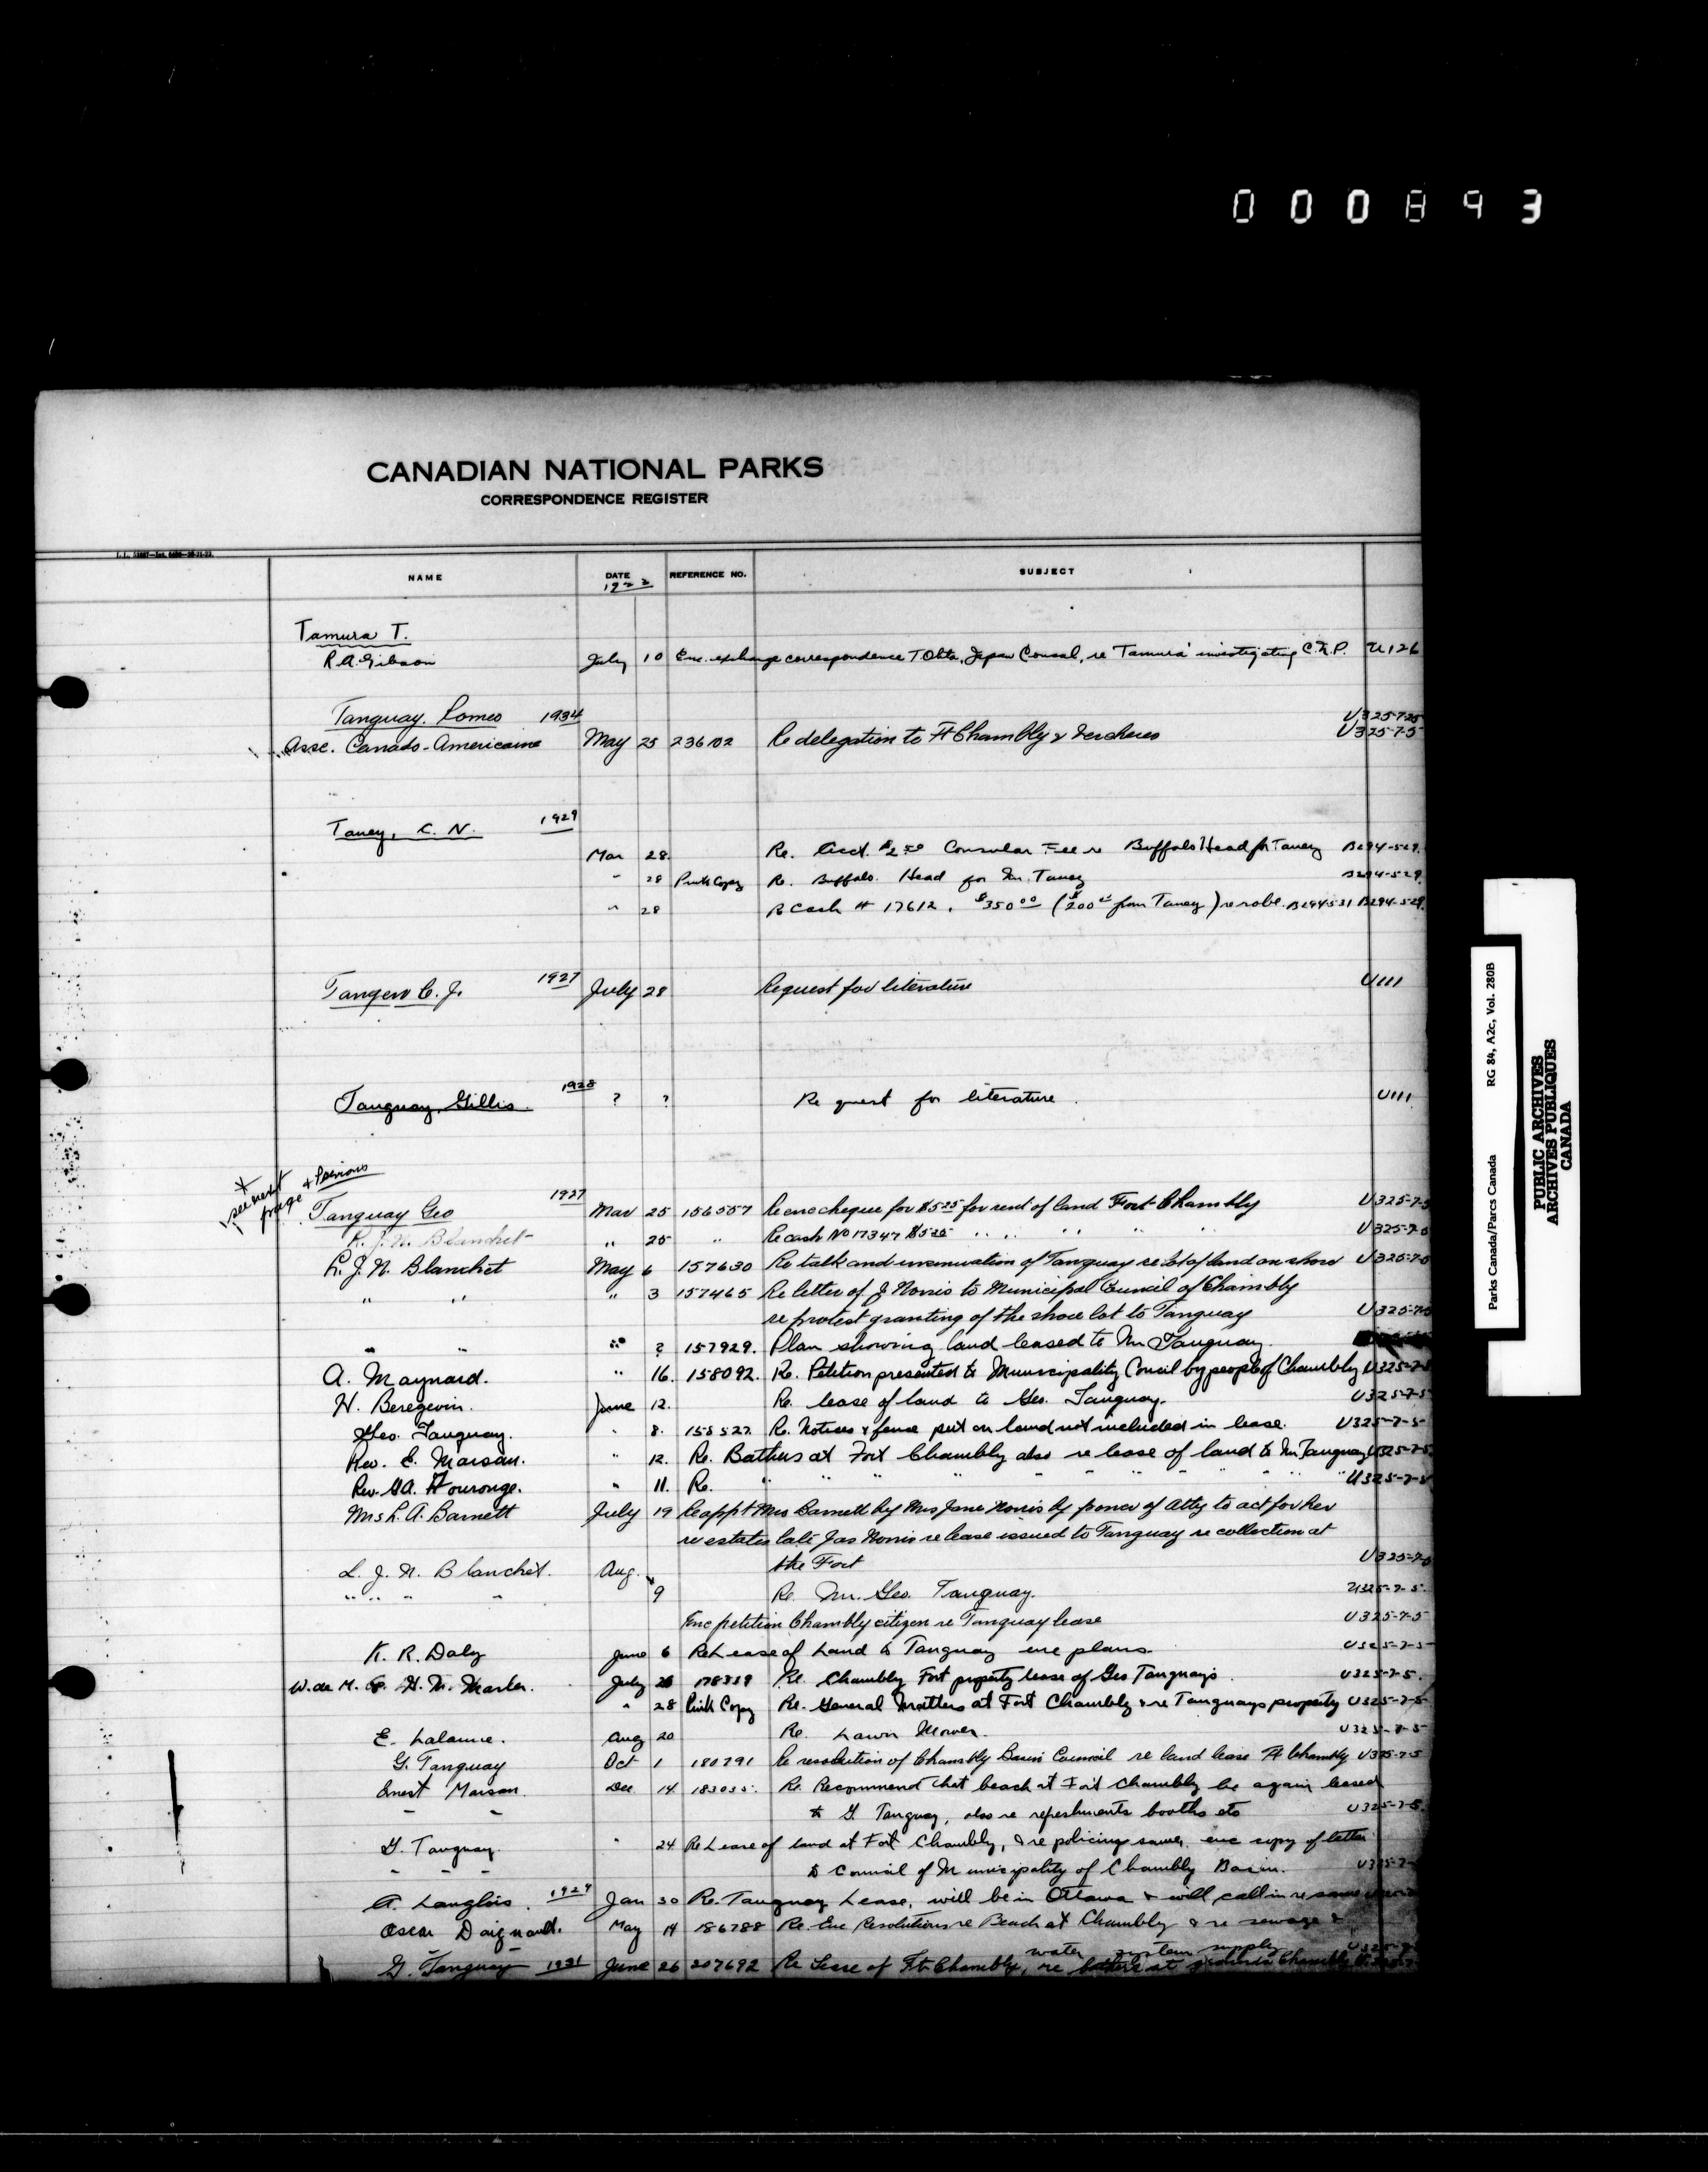 000893
CANADIAN NATIONAL PARKS
CORRESPONDENCE REGISTER
NAME DATE REFERENCE NO. SUBJECT
Tamura T.
R.A. Gibson July 10 Enc. exchange correspondence T Ohta, Japan Consul, re Tamura investigating C.N.P. U126
Tanguay. Romeo 1934 U325-7-25
Assc. Canado-Americaine May 25 236102 Re delegation to Ft Chambly & Vercheres U325-7-5
Taney, C. N. 1929
Mar 28. Re. Acct. $2.50 Consular Fee re Buffalo Head for Taney B294-529.
" 28 Pink Copy Re. Buffalo Head for Mr. Taney B294-529
" 28 Re Cash # 17612. $350.00 ($200.00 from Taney) re robe. B294-531 B294-529.
Tangen C. J. 1927 July 28 Request for literature U111
Tanguay, Gillis. 1928 ? ? Request for literature. U111
* see next page & Previous
Tanguay Geo 1927 Mar 25 156557 Re enc cheque for $5.25 for rent of land Fort Chambly U325-7-5
L. J. N. Blanchet " 25 " Re cash No 17347 $5.25 " " " " U325-7-5
L. J. N. Blanchet May 6 157630 Re talk and insinuation of Tanguay re lot of land on shore U325-7-5
" " " 3 157465 Re letter of J Norris to Municipal Council of Chambly
re protest granting of the shore lot to Tanguay U325-7-5
" " " ? 157929. Plan showing land leased to Mr Tanguay.
A. Maynard. " 16. 158092. Re. Petition presented to Municipality Council by people of Chambly U325-7-5
H. Beregevin. June 12. Re. lease of land to Geo. Tanguay. U325-7-5
Geo. Tanguay. " 8. 158527. Re. Notices & fence put on land not included in lease. U325-7-5
Rev. E. Marsan. " 12. Re. Bathers at Fort Chambly also re lease of land to Mr Tanguay U325-7-5
Rev. G.A. " 11. Re. " " " " U325-7-5
Mrs L. A. Barnett July 19 Re appt Mrs Barnett by Mrs Jane Norris by power of atty to act for her
re estates late Jas Norris re lease issued to Tanguay re collection at
the Fort U325-7-5
L. J. N. Blanchet. Aug.
" " " " 9 Re. Mr. Geo. Tanguay. U325-7-5.
Enc petition Chambly citizen re Tanguay lease U325-7-5
K. R. Daly June 6 Re Lease of Land to Tanguay enc plans. U325-7-5
W. de M. & H. M. Marler. July 26 178339 Re. Chambly Fort property lease of Geo Tanguay's. U325-7-5.
" 28 Pink Copy Re. General Matters at Fort Chambly & re Tanguays property U325-7-5
E. Lalanne. Aug 20 Re. Lawn Mower. U325-7-5
G. Tanguay Oct 1 180791 Re resolution of Chambly Basin Council re land lease Ft Chambly U325-7-5
Ernest Marsan. Dec. 14 183035. Re. Recommend that beach at Fort Chambly be again leased
to G. Tanguay, also re refreshments booths etc U325-7-5.
G. Tanguay. " 24 Re Lease of land at Fort Chambly, & re policing same, enc copy of letter
to Council of Municipality of Chambly Basin. U325-7-
A. Langlois. 1929 Jan 30 Re. Tanguay Lease, will be in Ottawa & will call in re same
Oscar Daignault. May 14 186788 Re. Enc Resolutions re Beach at Chambly & re sewage &
water system supply U325-7-
G. Tanguay 1931 June 26 207692 Re Lease of Ft. Chambly, re bathers at Chambly
Parks Canada/Parcs Canada RG 84, A2c, Vol. 280B
PUBLIC ARCHIVES
ARCHIVES PUBLIQUES
CANADA